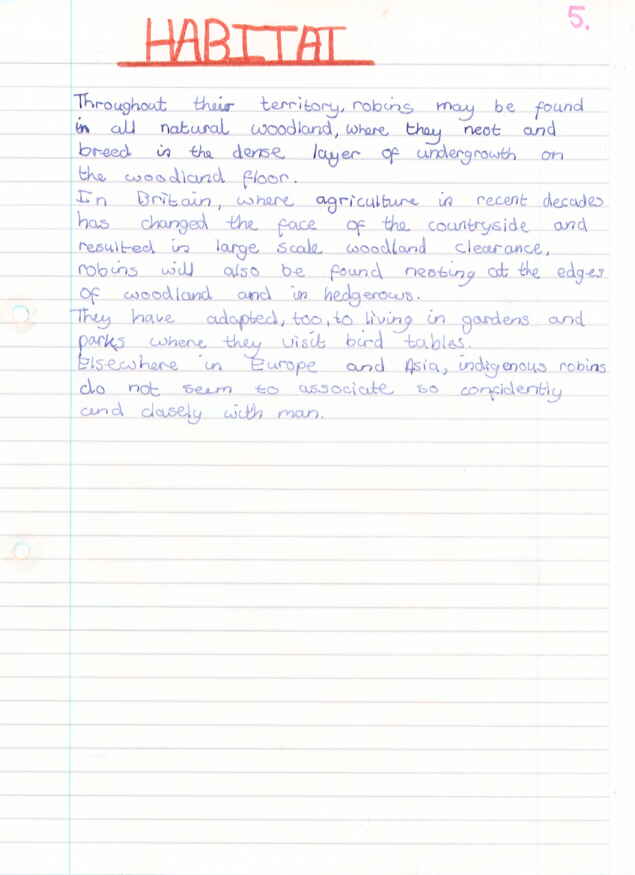 HABITAT
5.
Throughout their territory, robins may be found
in all natural woodland, where they nest and
breed in the dense layer of undergrowth on
the woodland floor.
In Britain, where agriculture in recent decades
has changed the face of the countryside and
resulted in large scale woodland clearance,
robins will also be found nesting at the edges
of woodland and in hedgerows.
They have adapted, too, to living in gardens and
parks where they visit bird tables.
Elsewhere in Europe and Asia, indigenous robins
do not seem to associate so confidently
and closely with man.